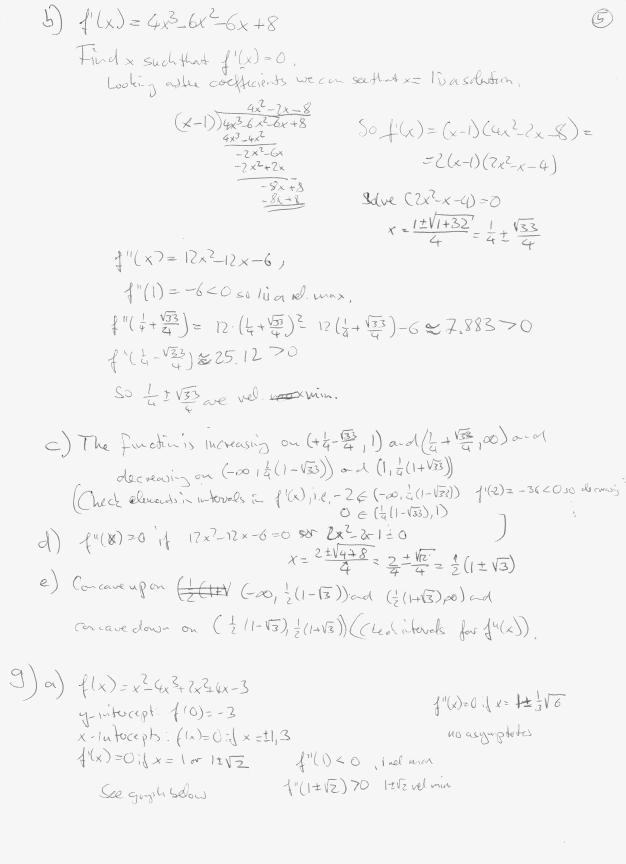 5
b) f'(x) = 4x³-6x²-6x+8
Find x such that f'(x)=0.
Looking at the coefficients we can see that x=1 is a solution.
4x²-2x-8
(x-1))4x³-6x²-6x+8
4x³-4x²
-2x²-6x
-2x²+2x
-8x+8
-8x+8
So f'(x) = (x-1)(4x²-2x-8) =
=2(x-1)(2x²-x-4)
Solve (2x²-x-4)=0
x = (1±√(1+32))/4 = 1/4 ± √33/4
f''(x) = 12x²-12x-6,
f''(1) = -6<0 so 1 is a rel. max.
f''(1/4+√33/4) = 12·(1/4+√33/4)²-12(1/4+√33/4)-6 ≈ 7.883>0
f''(1/4-√33/4) ≈ 25.12 >0
So 1/4 ± √33/4 are rel. min.
c) The function is increasing on (+1/4-√33/4, 1) and (1/4+√33/4, ∞) and
decreasing on (-∞, 1/4(1-√33)) and (1, 1/4(1+√33))
(Check elements in intervals in f'(x), i.e. -2 ∈ (-∞, 1/4(1-√33)) f'(-2) = -36<0 so decreasing
0 ∈ (1/4(1-√33), 1) )
d) f''(x)=0 if 12x²-12x-6=0 or 2x²-2x-1=0
x = (2±√(4+8))/4 = 2/4 ± √12/4 = 1/2(1±√3)
e) Concave upon (-∞, 1/2(1-√3)) and (1/2(1+√3), ∞) and
concave down on (1/2(1-√3), 1/2(1+√3)) (Check intervals for f''(x)).
9) a) f(x) = x²-4x³+2x²+4x-3
y-intercept: f(0) = -3
x-intercepts: f(x)=0 if x=±1,3
f'(x)=0 if x = 1 or 1±√2
f''(1) < 0, 1 rel max
f''(1±√2) >0 1±√2 rel min
f''(x)=0 if x = 1±1/3√6
no asymptotes
See graph below